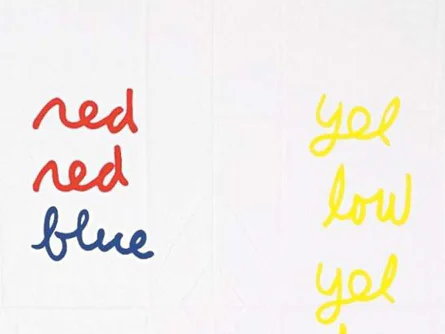 red
red
blue
yel
low
yel